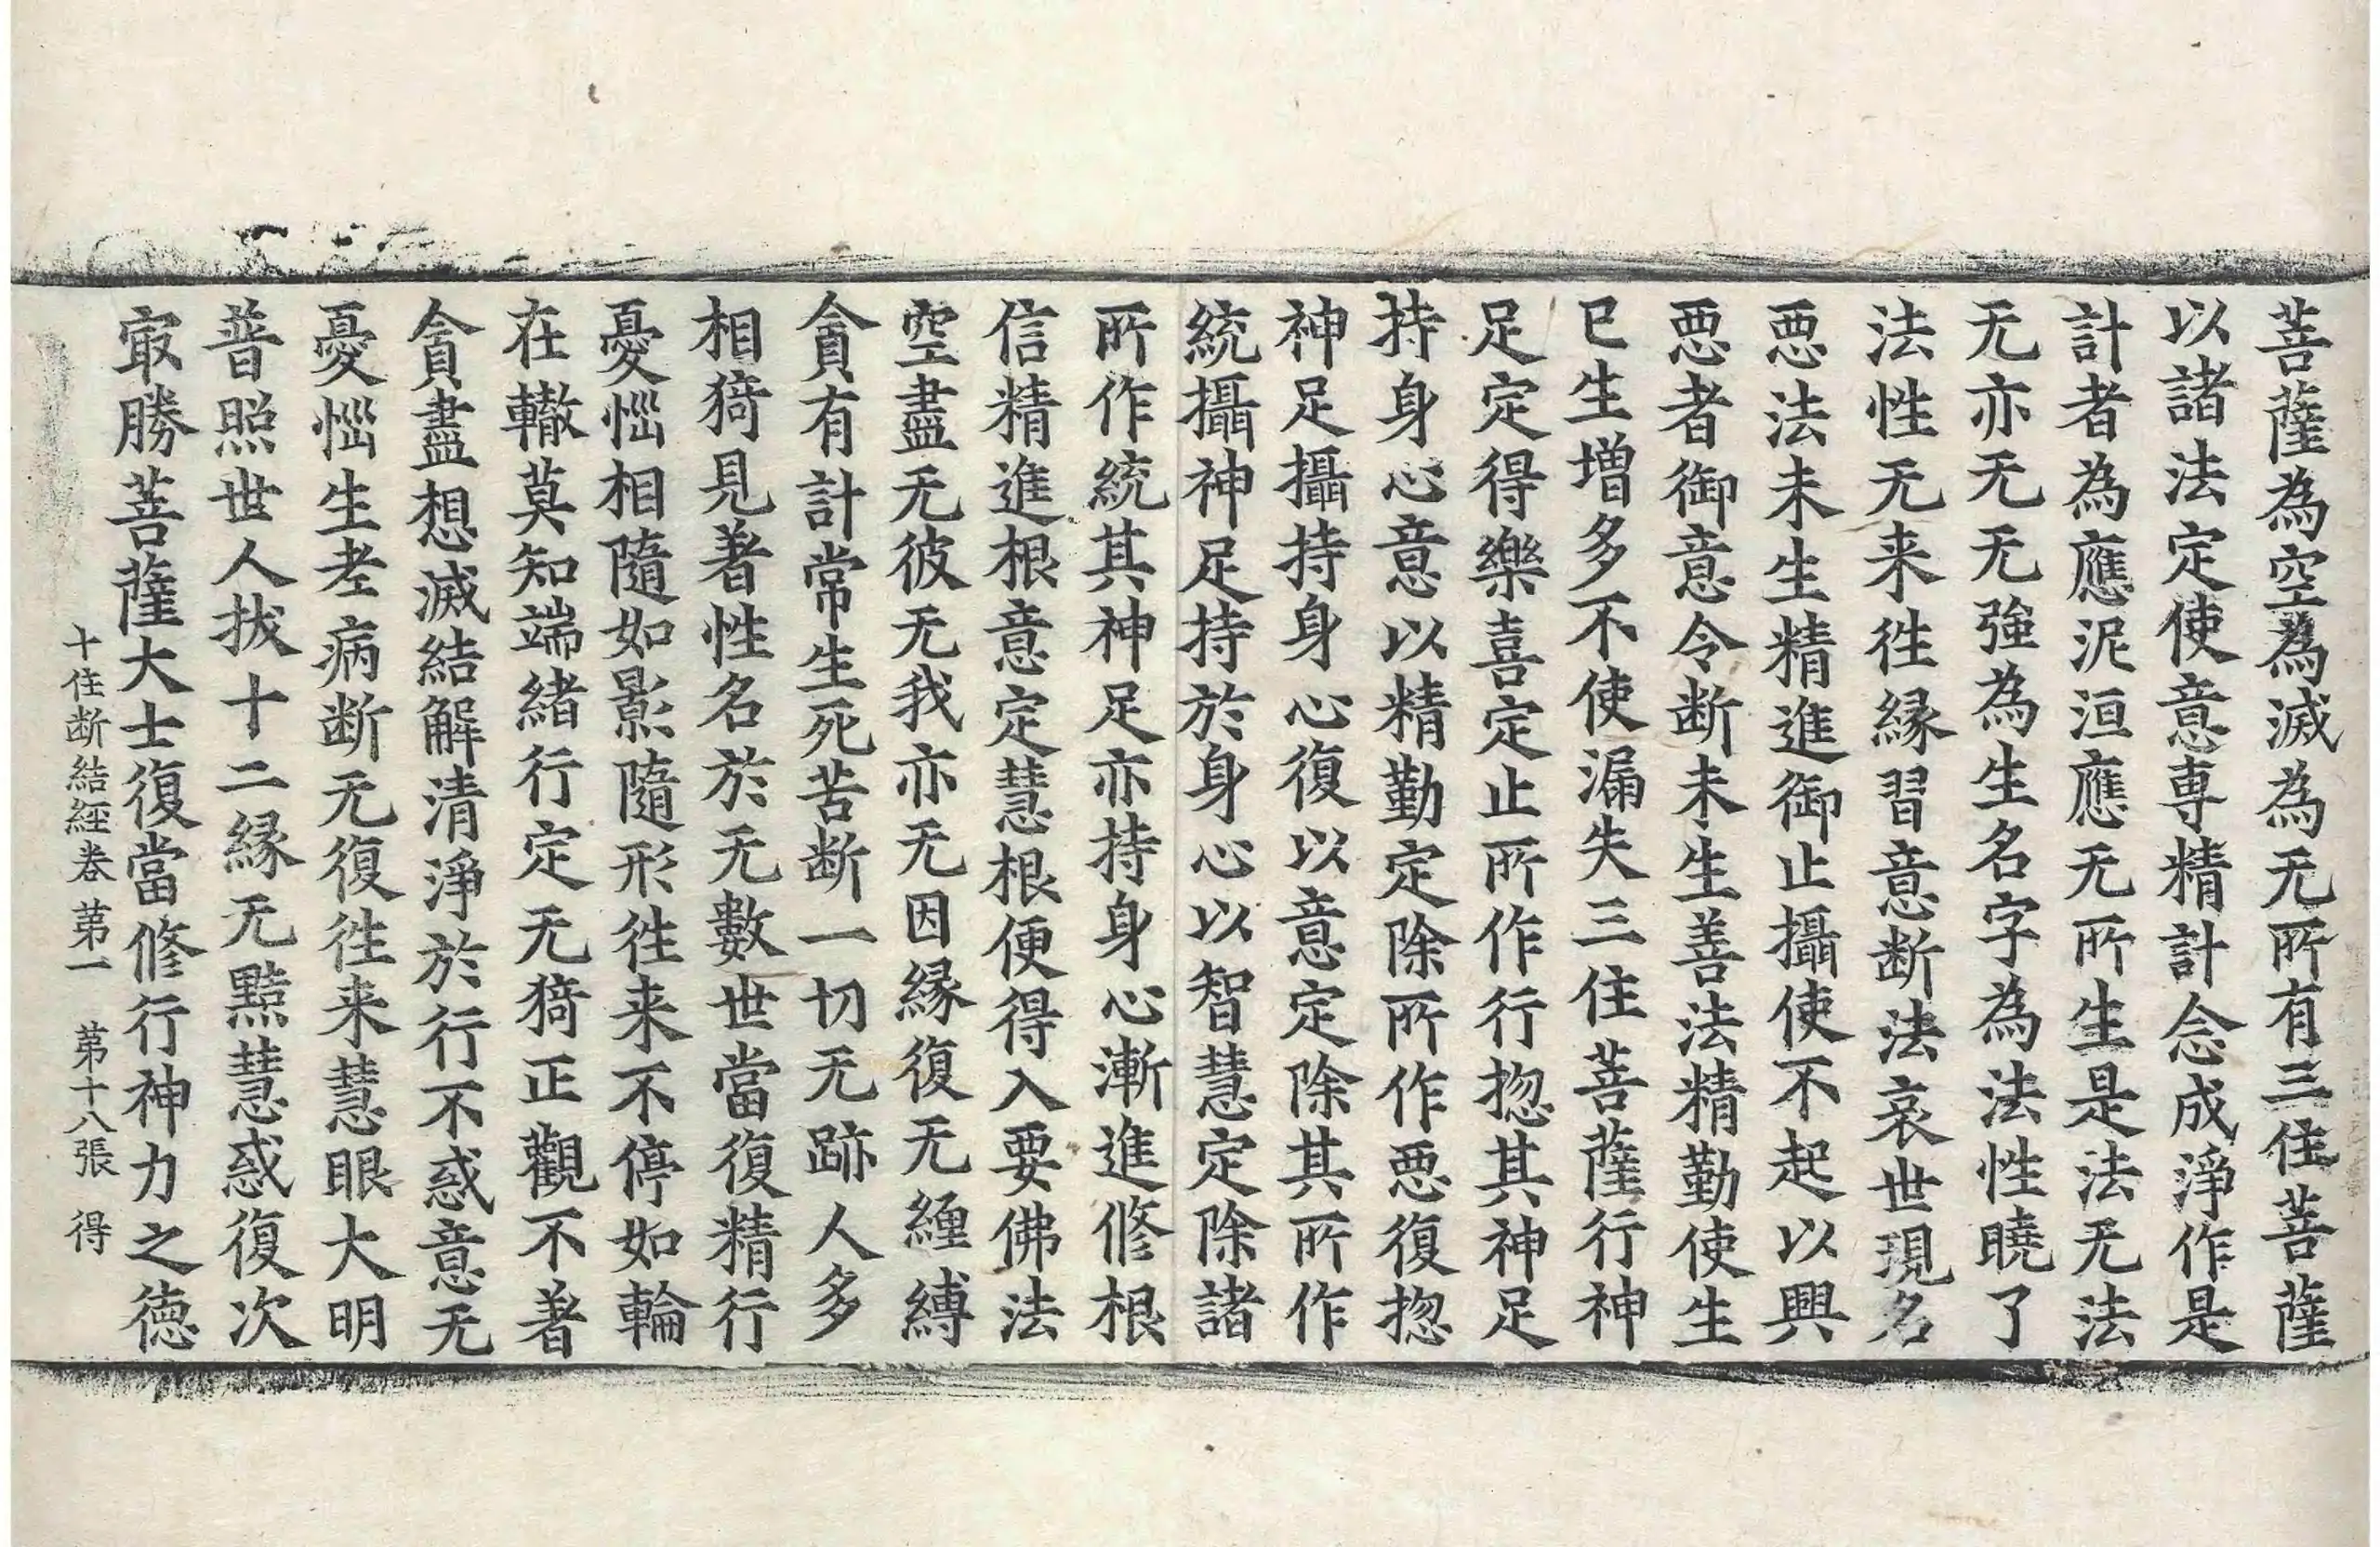 菩薩為空為滅為无所有三住菩薩
以諸法定使意専精計念成淨作是
計者為應泥洹應无所生是法无法
无亦无无強為生名字為法性曉了
法性无来徃縁習意断法哀世現名
惡法未生精進御止攝使不起以興
惡者御意令断未生善法精勤使生
已生増多不使漏失三住菩薩行神
足定得樂喜定止所作行惚其神足
持身心意以精勤定除所作惡復惚
神足攝持身心復以意定除其所作
統攝神足持於身心以智慧定除諸
所作統其神足亦持身心漸進修根
信精進根意定慧根便得入要佛法
空盡无彼无我亦无因縁復无纏縛
貪有計常生死苦断一切无跡人多
相猗見著性名於无數世當復精行
憂惱相隨如影隨形徃来不停如輪
在轍莫知端緒行定无猗正觀不著
貪盡想滅結解清淨於行不惑意无
憂惱生老病断无復徃来慧眼大明
普照世人拔十二縁无黠慧惑復次
㝡勝菩薩大士復當修行神力之德
十住断結經卷苐一　苐十八張　得